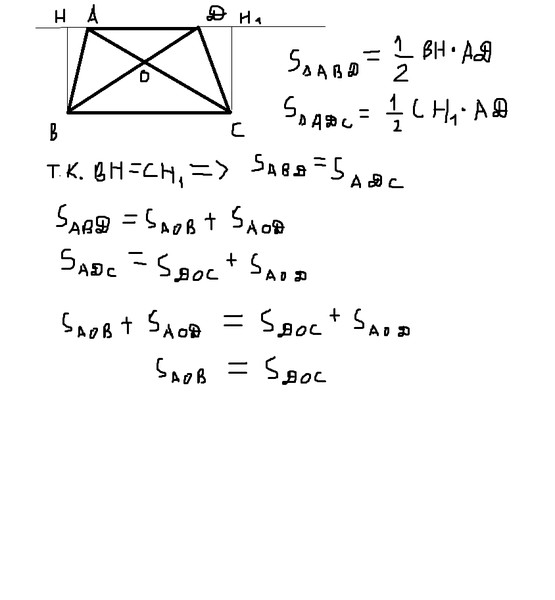 H A D H₁
O
B C
S△ABD = 1/2 BH · AD
S△ADC = 1/2 CH₁ · AD
Т.К. BH=CH₁ => SABD = SADC
SABD = SAOB + SAOD
SADC = SDOC + SAOD
SAOB + SAOD = SDOC + SAOD
SAOB = SDOC